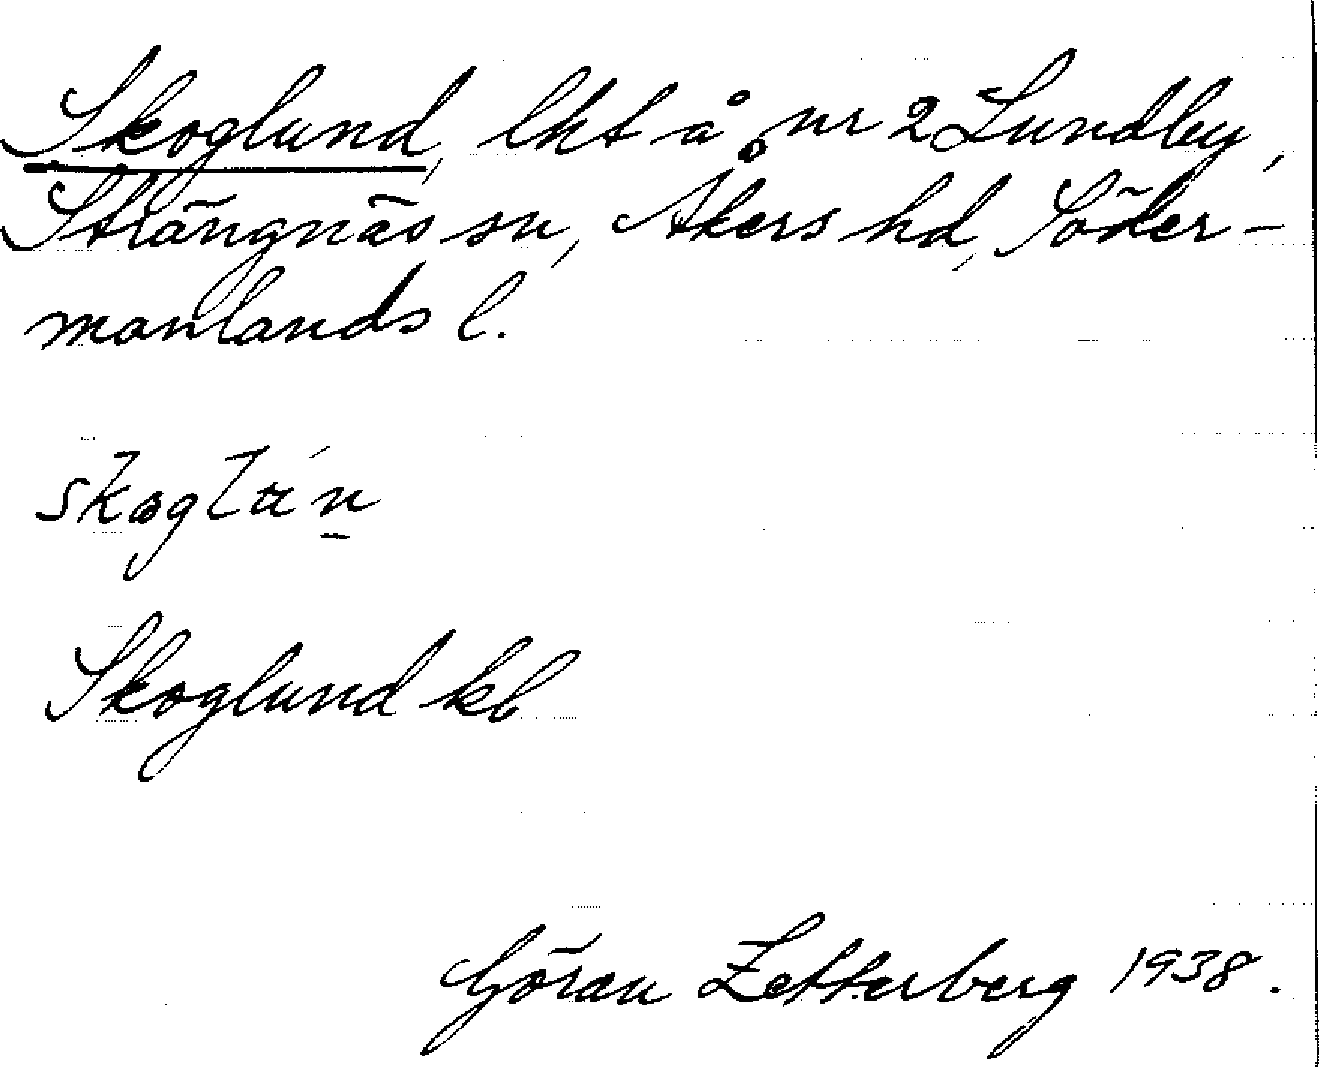 Skoglund, lht å nr 2 Lundby,
Strängnäs sn, Åkers hd, Söder-
manlands l.
Skoglund kb
Göran Zetterberg 1938.